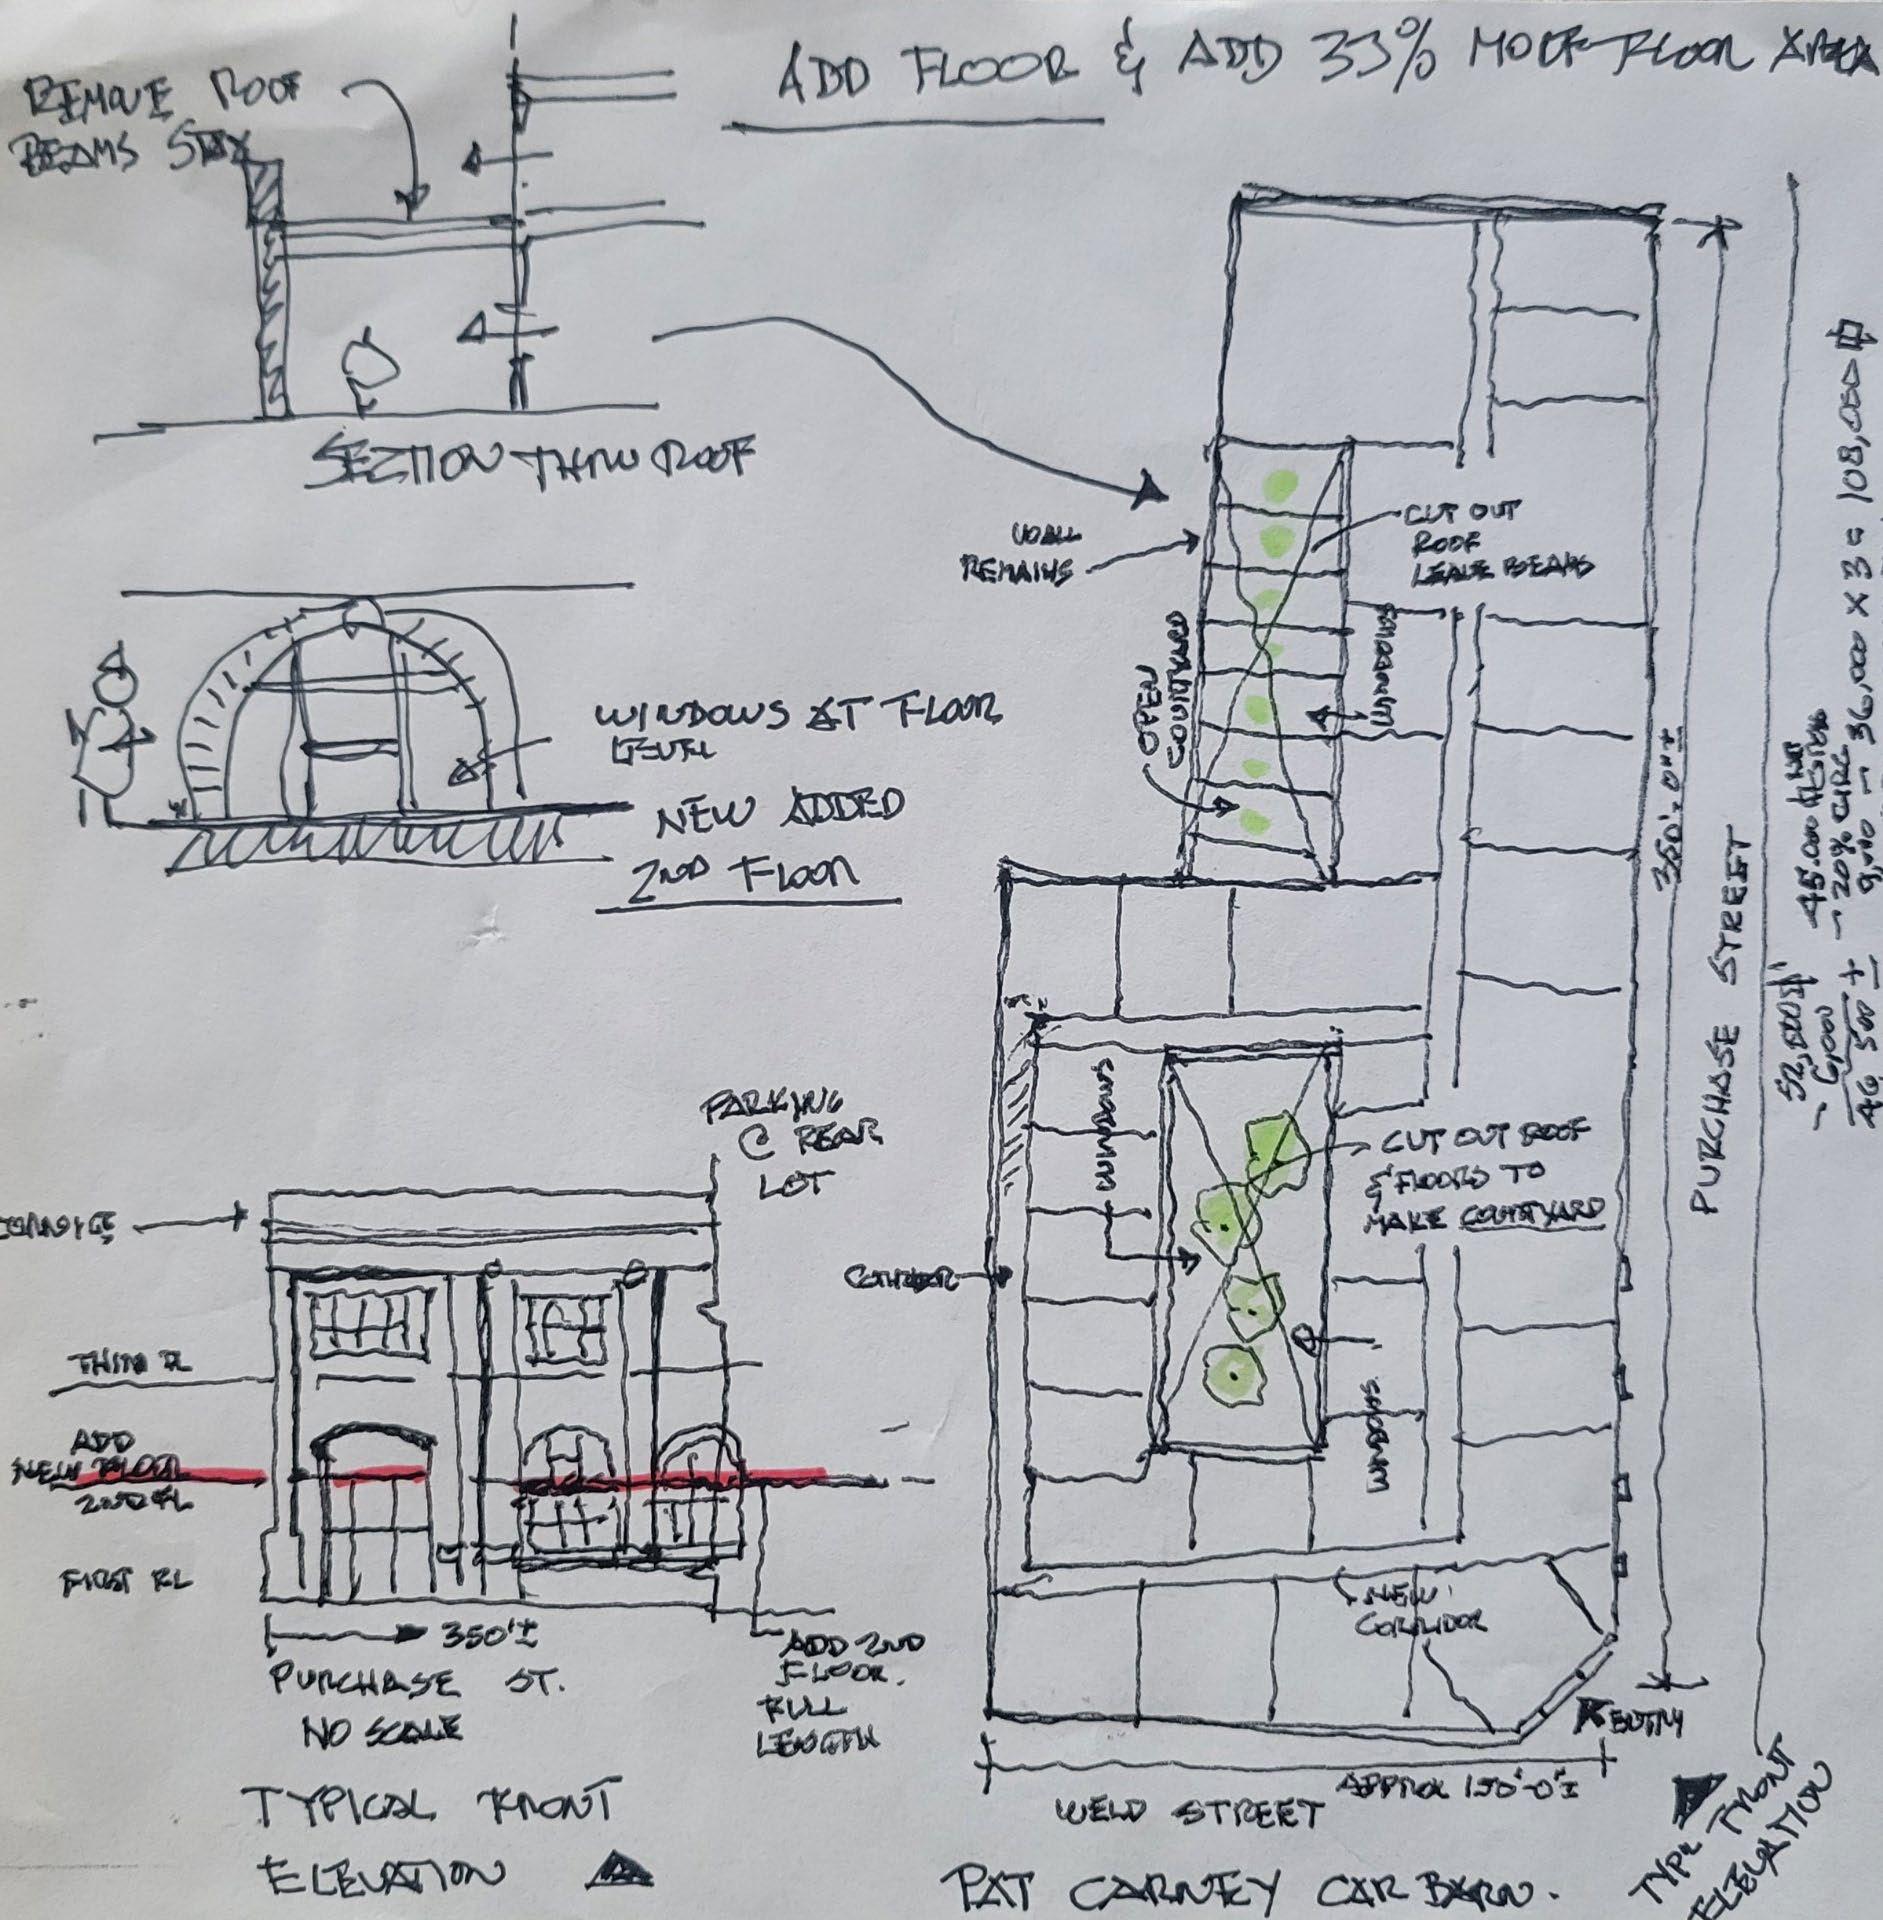 ADD FLOOR & ADD 33% MORE FLOOR AREA
REMOVE ROOF
BEAMS STAY
SECTION THRU ROOF
WINDOWS AT FLOOR
LEVEL
NEW ADDED
2ND FLOOR
WALL
REMAINS
CUT OUT
ROOF
LEAVE BEAMS
OPEN
COURTYARD
WINDOWS
350'-0"±
PURCHASE STREET
45,000
- 20% CIRC
9,000 - 36,000 X 3 = 108,000
52,500
- 6,000
46,500 ±
WINDOWS
CUT OUT ROOF
& FLOORS TO
MAKE COURTYARD
CORRIDOR
WINDOWS
NEW
CORRIDOR
ENTRY
APPROX 150'-0"±
WELD STREET
TYPL FRONT
ELEVATION
PAT CARNEY CAR BARN.
PARKING
@ REAR
LOT
CORNICE
THIRD FL
ADD
NEW FLOOR
2ND FL
FIRST FL
350'±
PURCHASE ST.
NO SCALE
ADD 2ND
FLOOR.
FULL
LENGTH
TYPICAL FRONT
ELEVATION